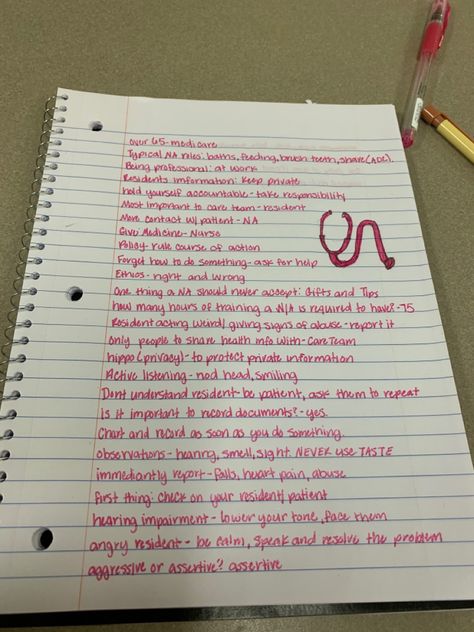 over 65-medicare
Typical NA roles: baths, feeding, brush teeth, shave (ADL).
Being professional: at work
Residents imformation: keep private
hold yourself accountable - take responsibility
Most important to care team - resident
More contact w/ patient - NA
Give Medicine - Nurse
Policy - rule course of action
Forget how to do something - ask for help
Ethics - right and wrong
One thing a NA should never accept: Gifts and Tips
how many hours of training a N/A is required to have? - 75
Resident acting weird/ giving signs of abuse - report it
only people to share health info with - Care Team
hippo (privacy) - to protect private information
Active listening - nod head, smiling
Dont understand resident - be patient, ask them to repeat
is it important to record documents? - yes.
Chart and record as soon as you do something.
observations - hearing, smell, sight. NEVER USE TASTE
immediantly report - falls, heart pain, abuse
first thing: check on your resident/ patient
hearing impairment - lower your tone, face them
angry resident - be calm, speak and resolve the problem
aggressive or assertive? assertive